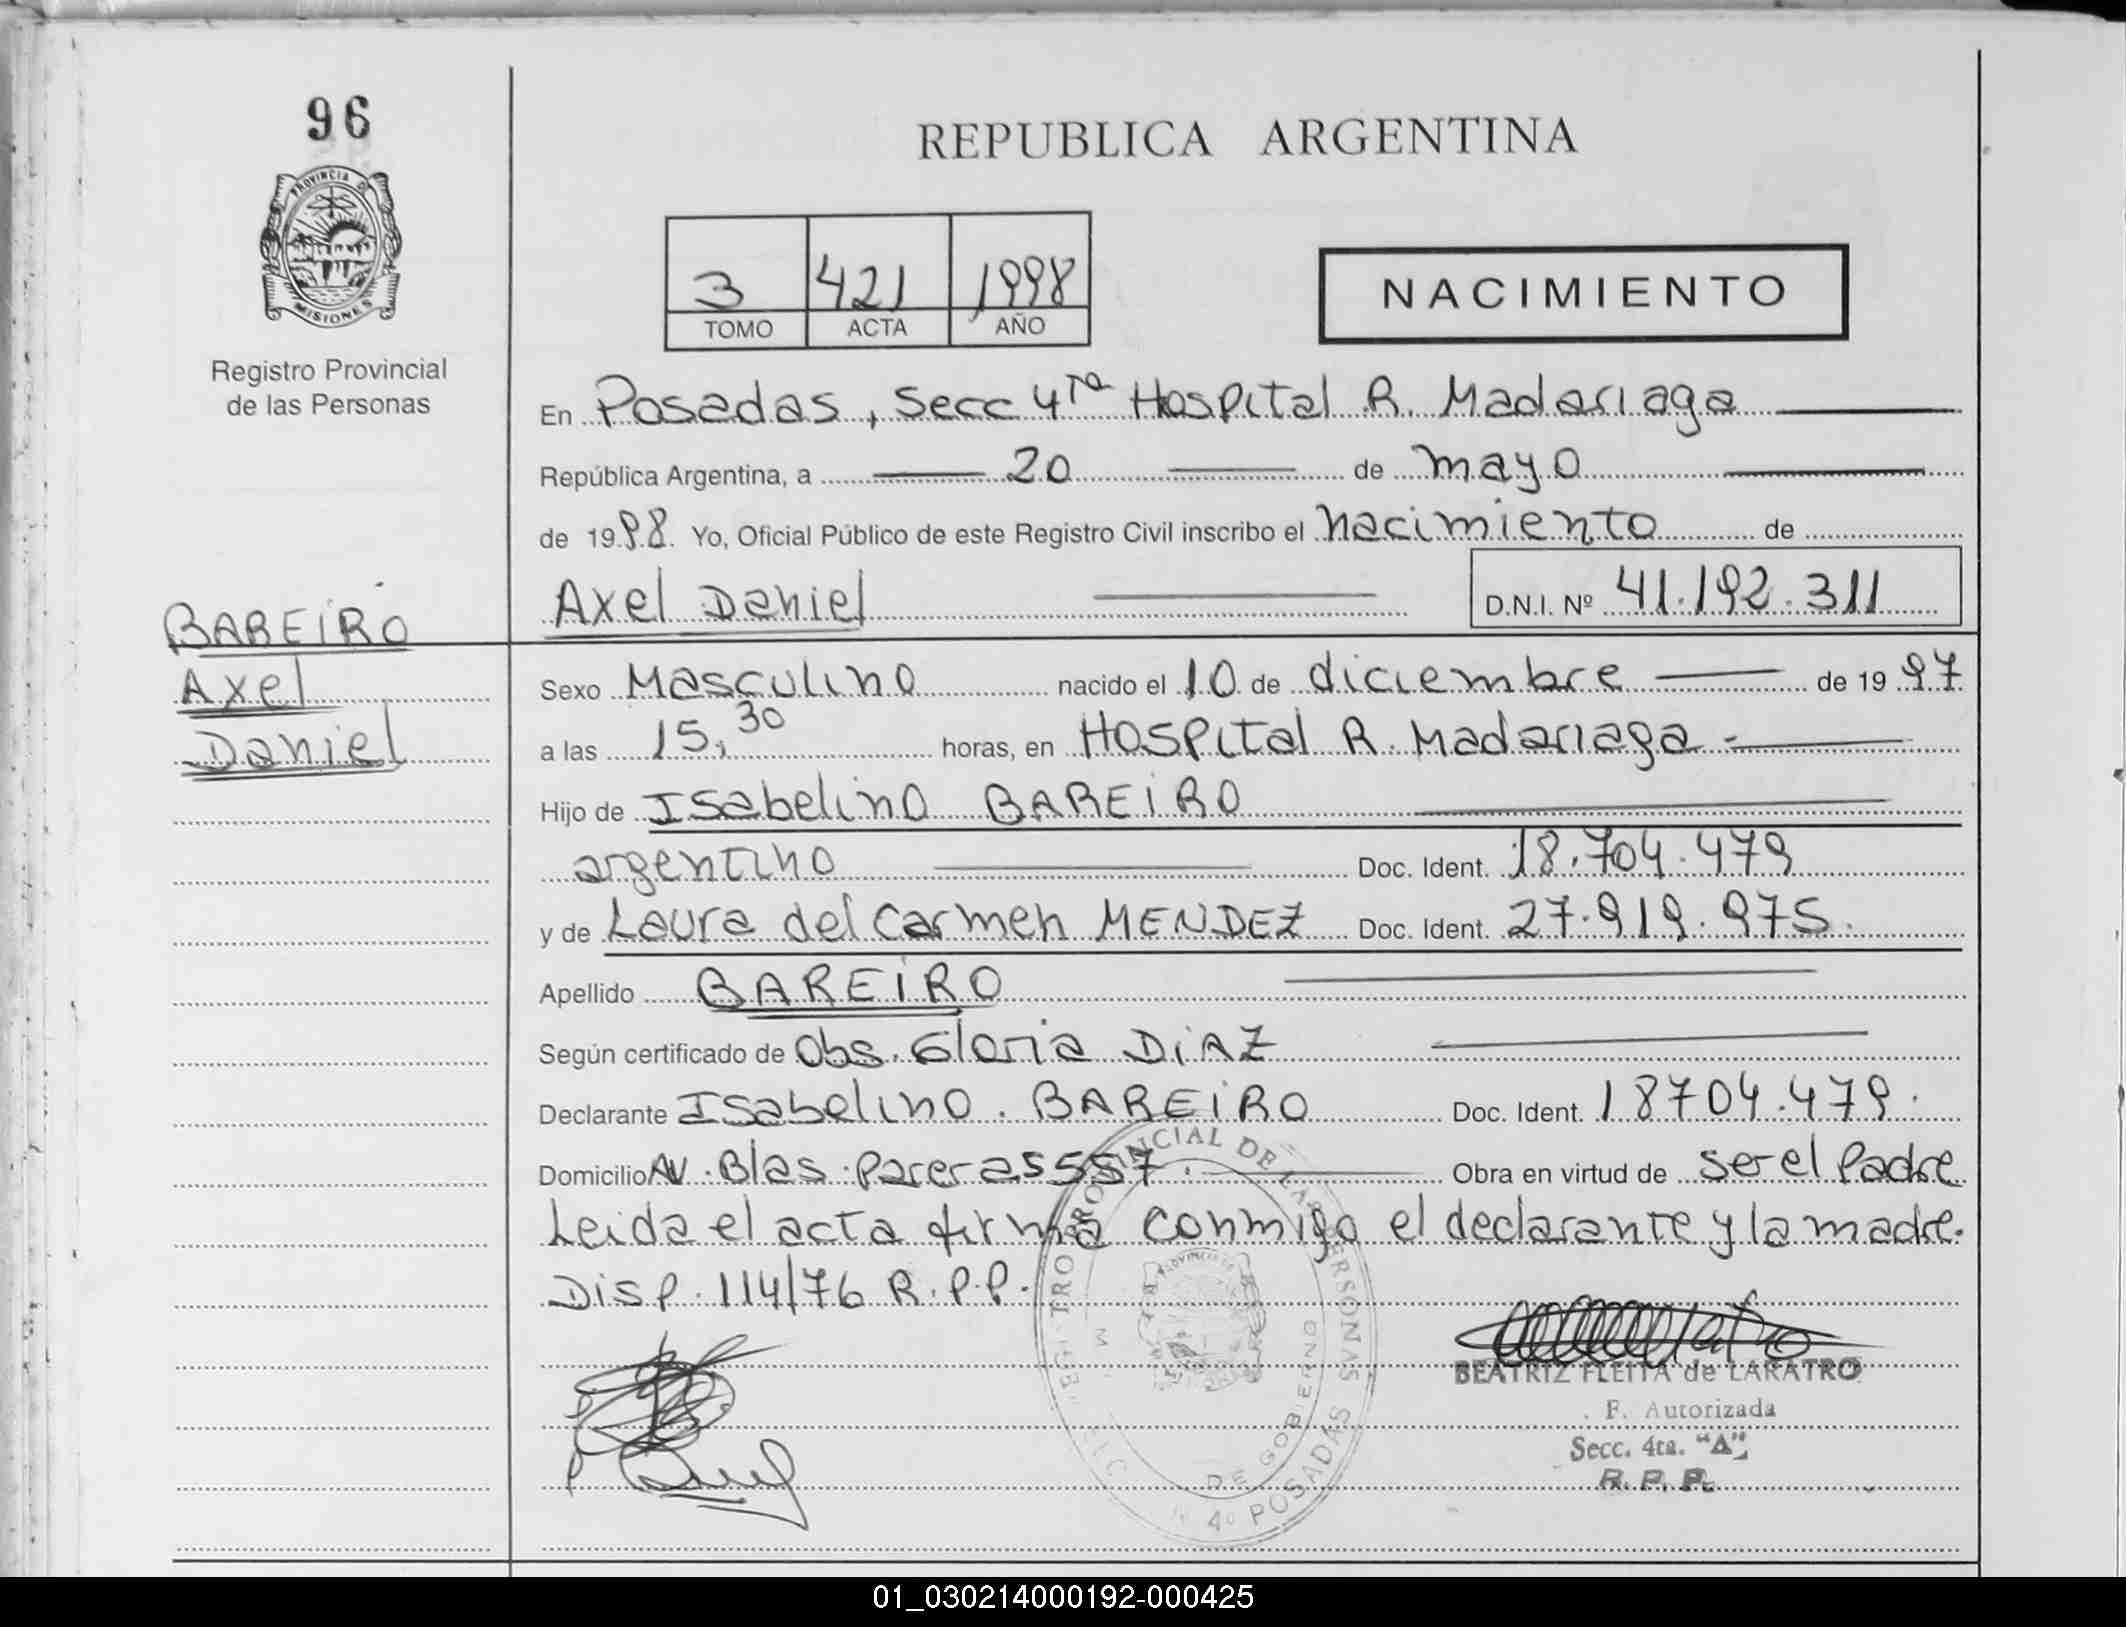 96
PROVINCIA DE
MISIONES
Registro Provincial
de las Personas
REPUBLICA ARGENTINA
3 421 1998
TOMO ACTA AÑO
NACIMIENTO
En Posadas, Secc 4ta Hospital R. Madariaga
República Argentina, a 20 de mayo
de 1998. Yo, Oficial Público de este Registro Civil inscribo el nacimiento de
Axel Daniel D.N.I. Nº 41.192.311
BAREIRO
Axel
Daniel
Sexo Masculino nacido el 10 de diciembre de 1997
a las 15,30 horas, en Hospital R. Madariaga -
Hijo de Isabelino BAREIRO
argentino Doc. Ident. 18.704.479
y de Laura del Carmen MENDEZ Doc. Ident. 27.919.975.
Apellido BAREIRO
Según certificado de Obs. Gloria DIAZ
Declarante Isabelino. BAREIRO Doc. Ident. 18704.479.
Domicilio Av. Blas Parera 5557. Obra en virtud de ser el Padre
Leida el acta firma conmigo el declarante y la madre.
Disp. 114/76 R.P.P.
PROVINCIAL DE LAS PERSONAS
DE GOBIERNO
4º POSADAS
BEATRIZ FLEITA de LARATRO
F. Autorizada
Secc. 4ta. "A"
R. P. P.
01_030214000192-000425